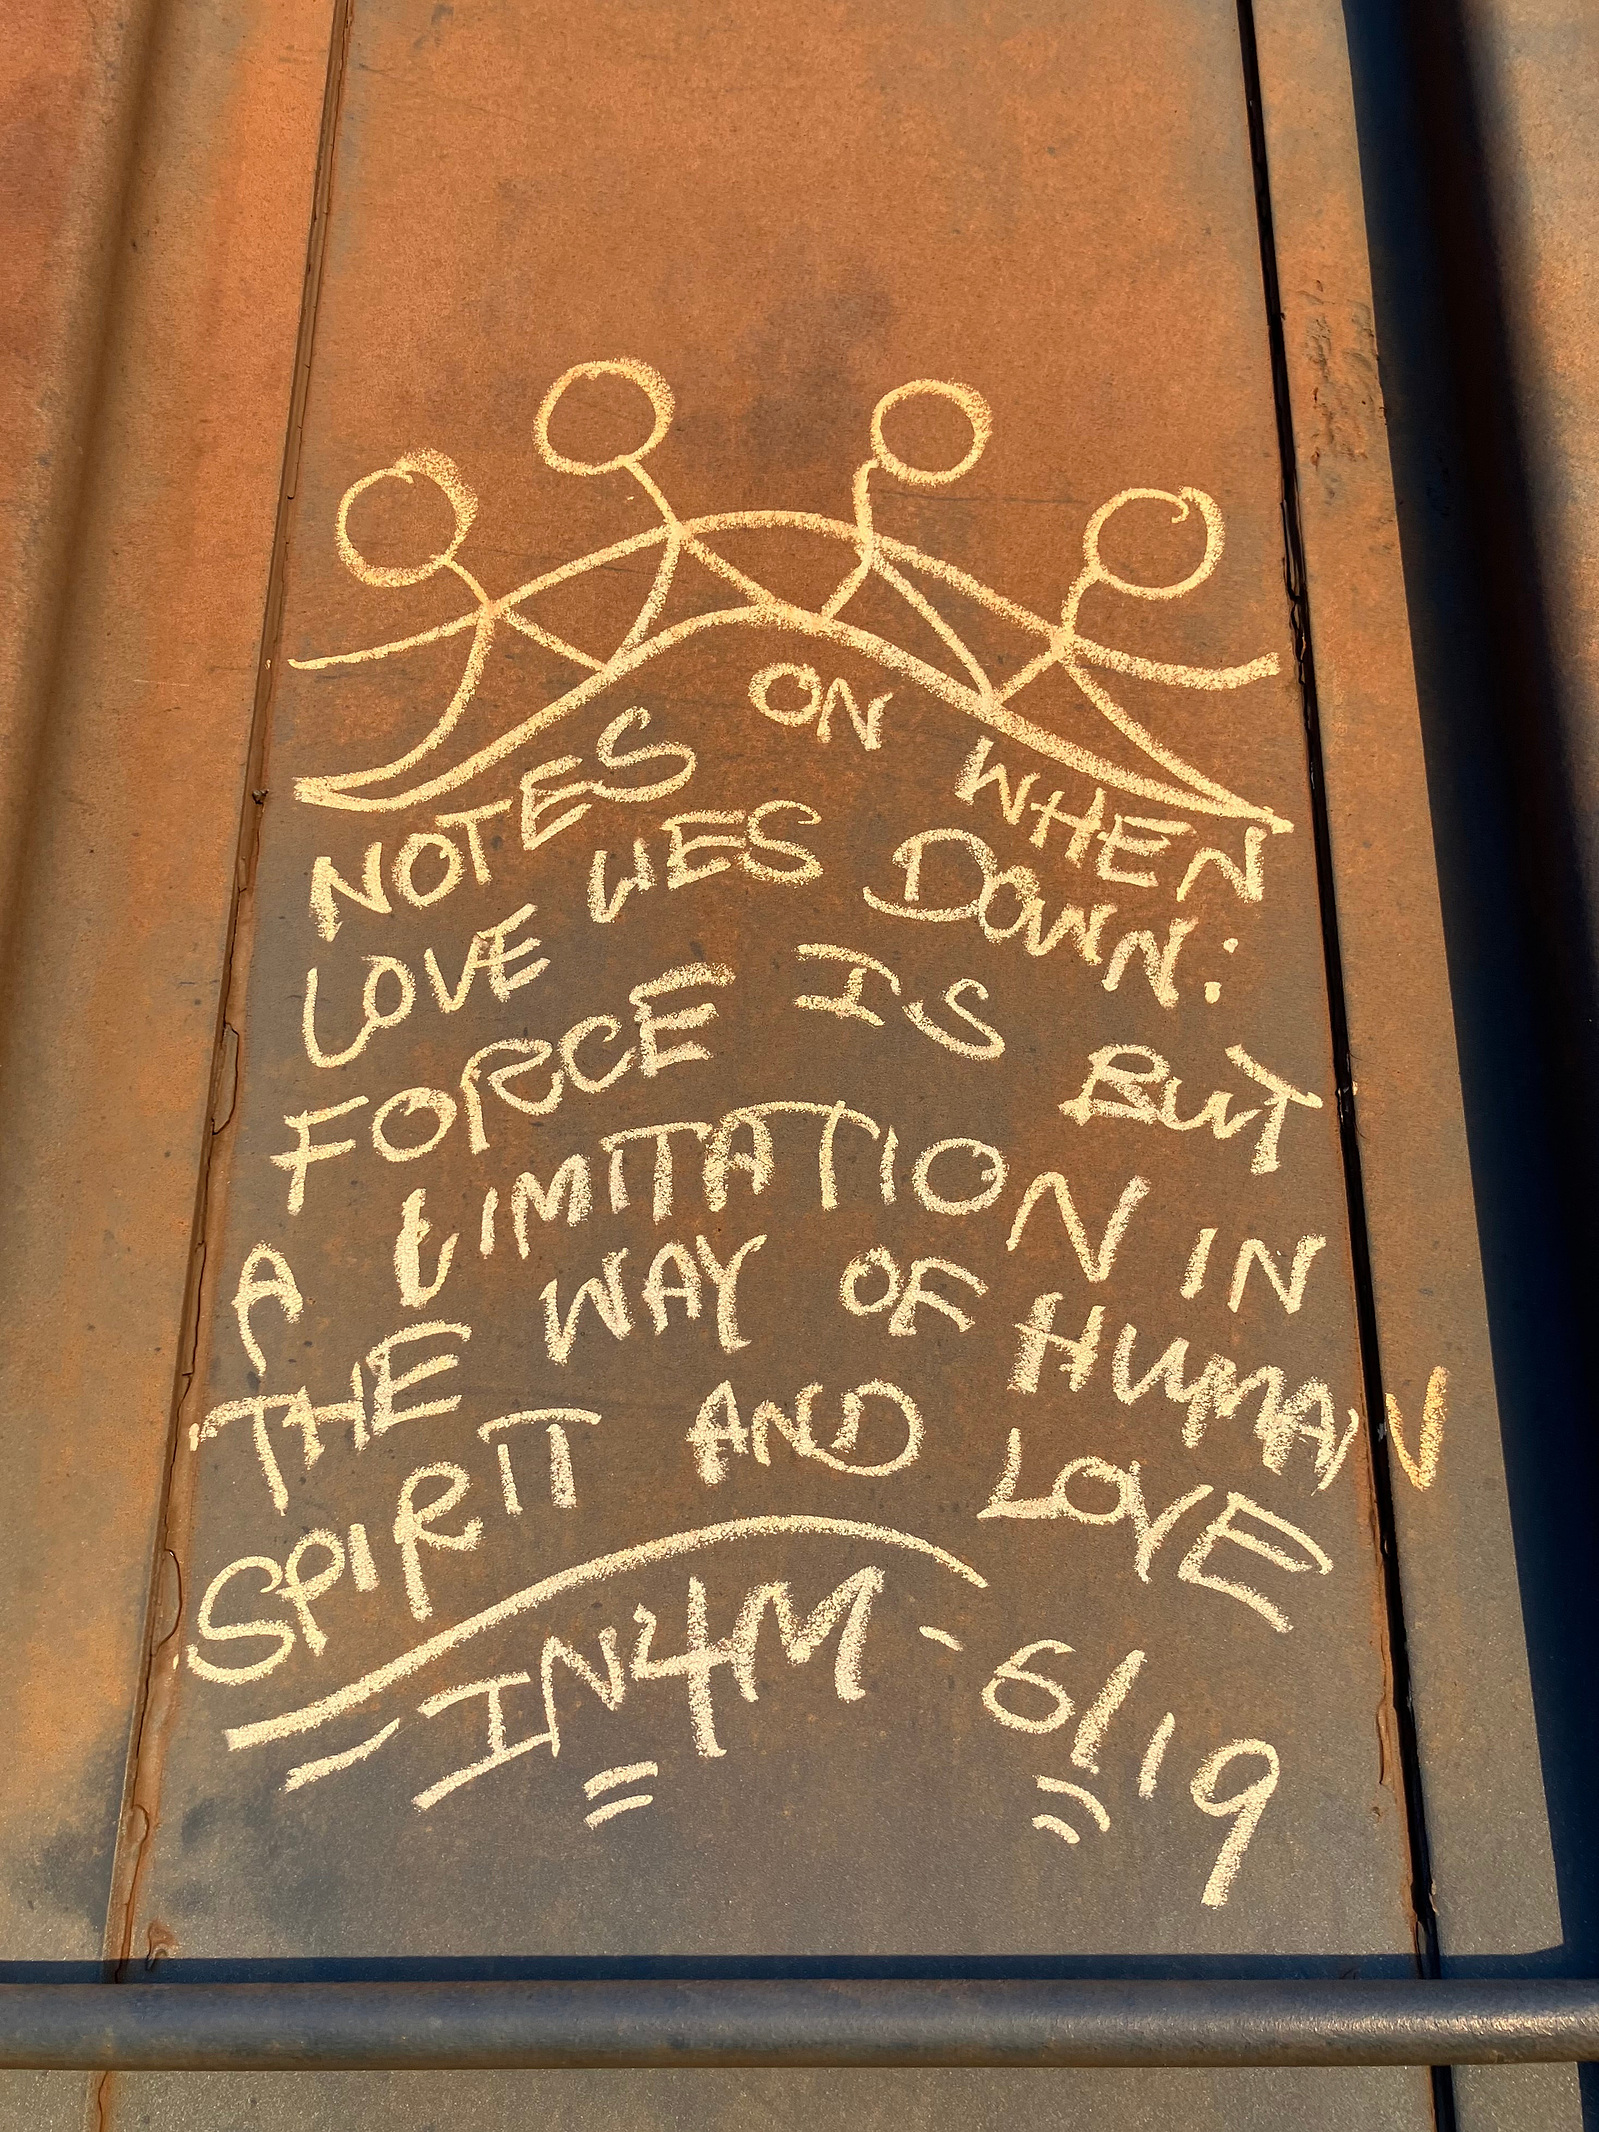 NOTES ON WHEN
LOVE LIES DOWN:
FORCE IS BUT
A LIMITATION IN
THE WAY OF HUMAN
SPIRIT AND LOVE
IN4M - 6/19